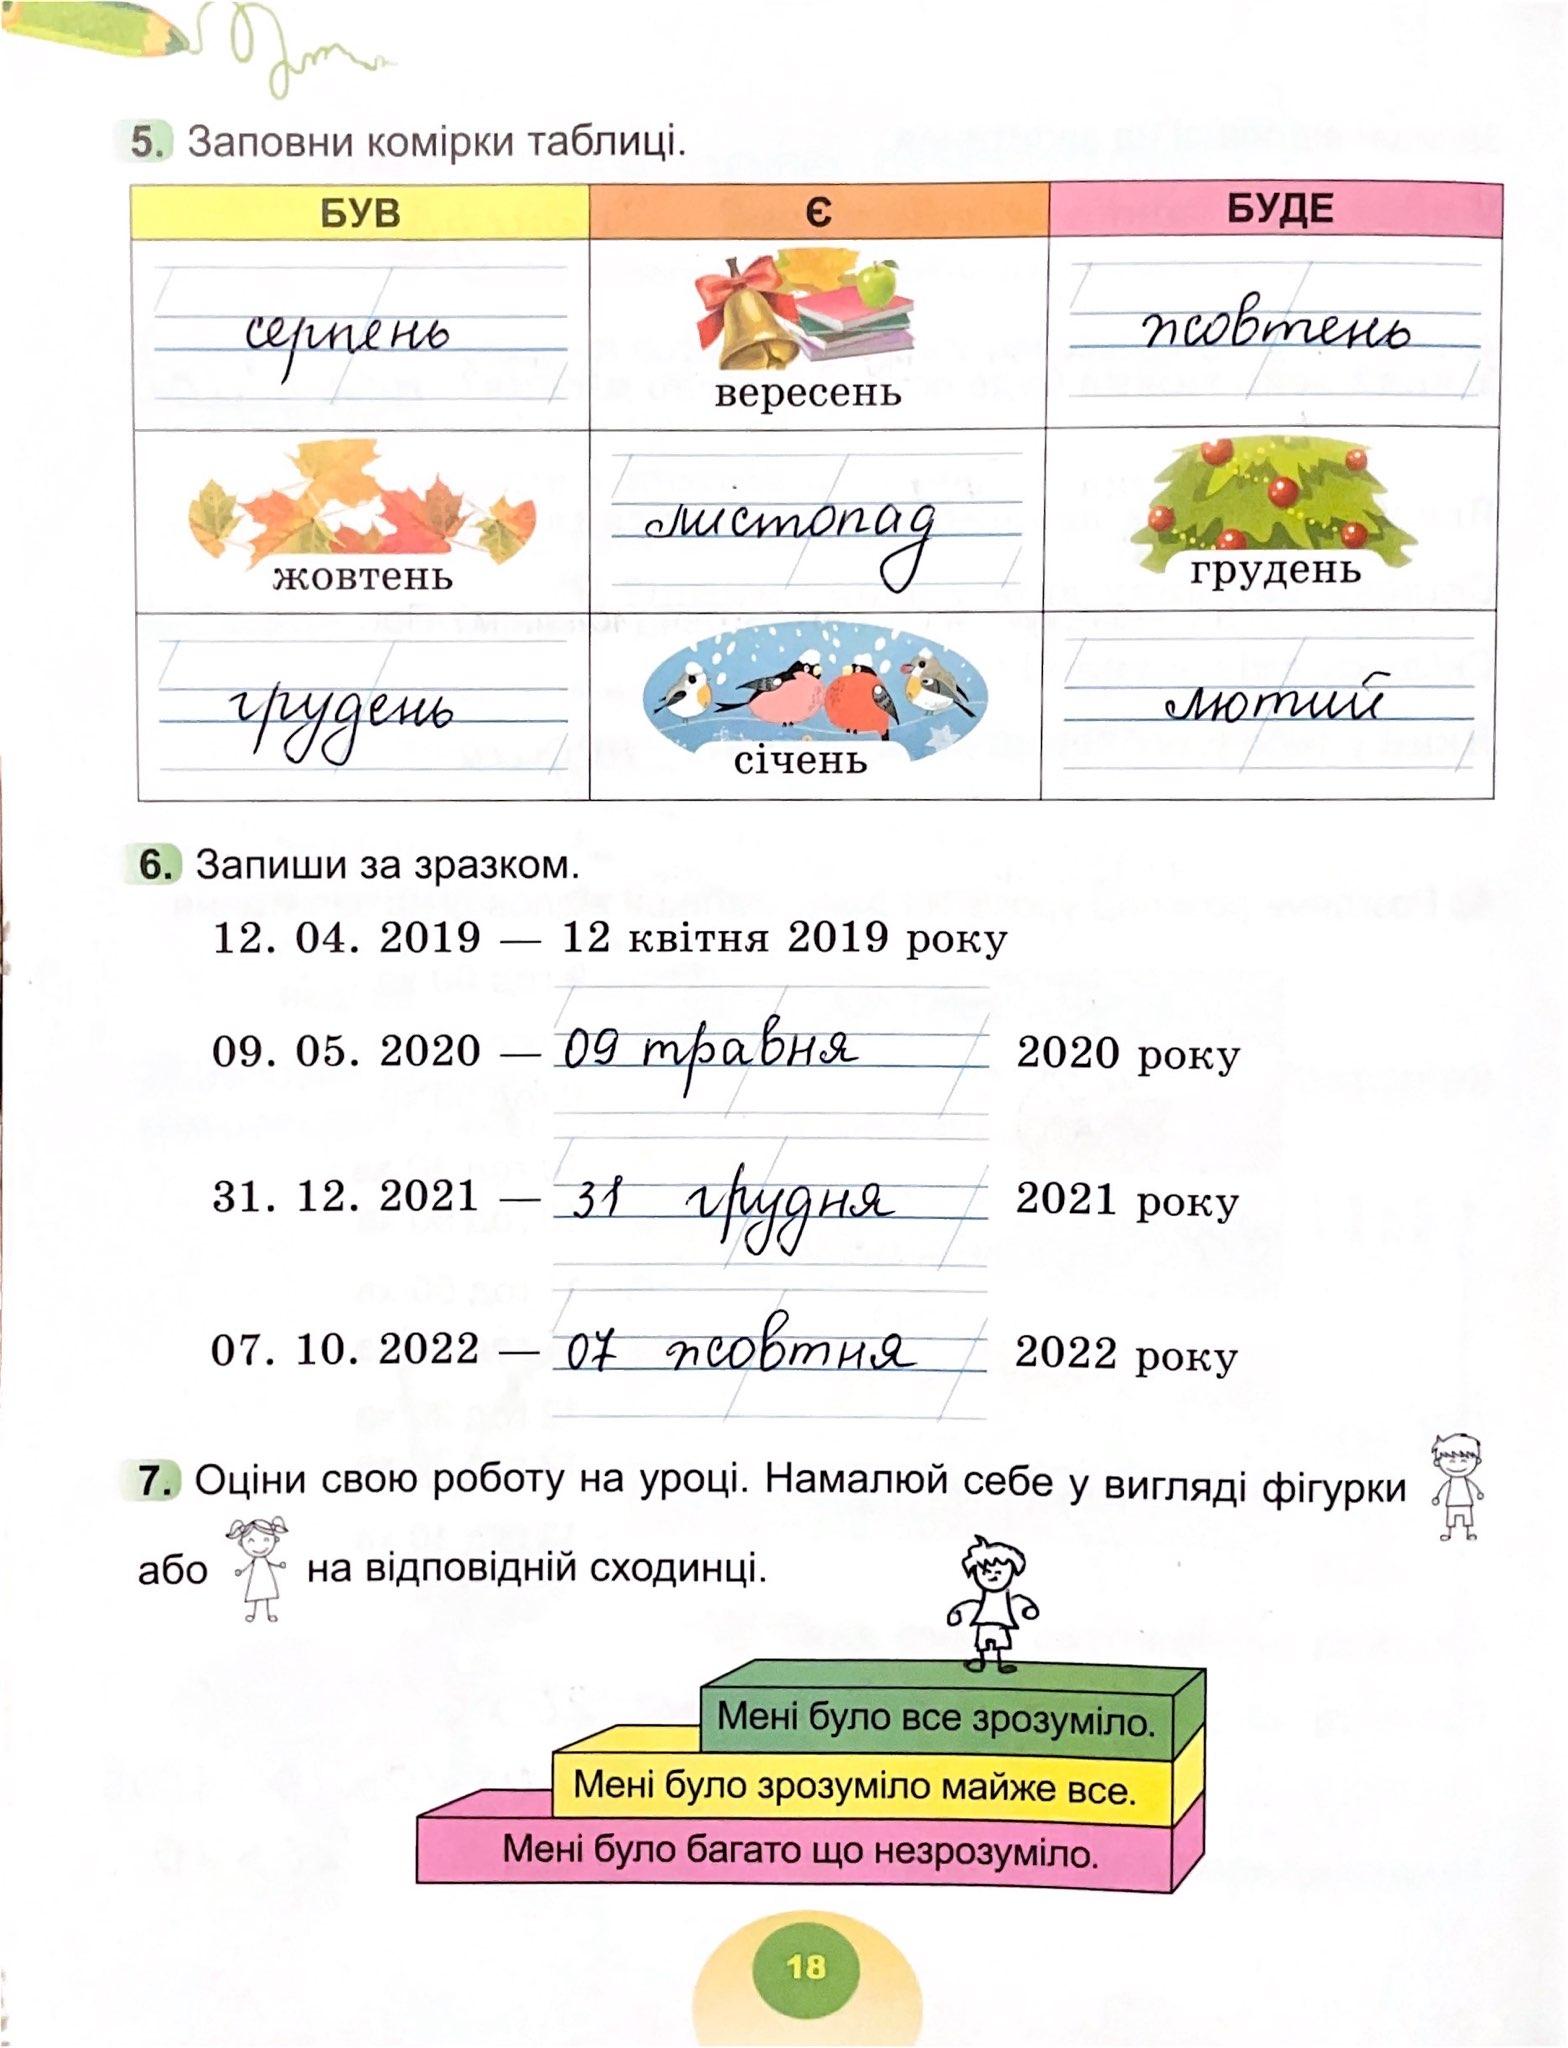 5. Заповни комірки таблиці.
БУВ Є БУДЕ
серпень вересень жовтень
жовтень листопад грудень
грудень січень лютий
6. Запиши за зразком.
12. 04. 2019 — 12 квітня 2019 року
09. 05. 2020 — 09 травня 2020 року
31. 12. 2021 — 31 грудня 2021 року
07. 10. 2022 — 07 жовтня 2022 року
7. Оціни свою роботу на уроці. Намалюй себе у вигляді фігурки
або на відповідній сходинці.
Мені було все зрозуміло.
Мені було зрозуміло майже все.
Мені було багато що незрозуміло.
18